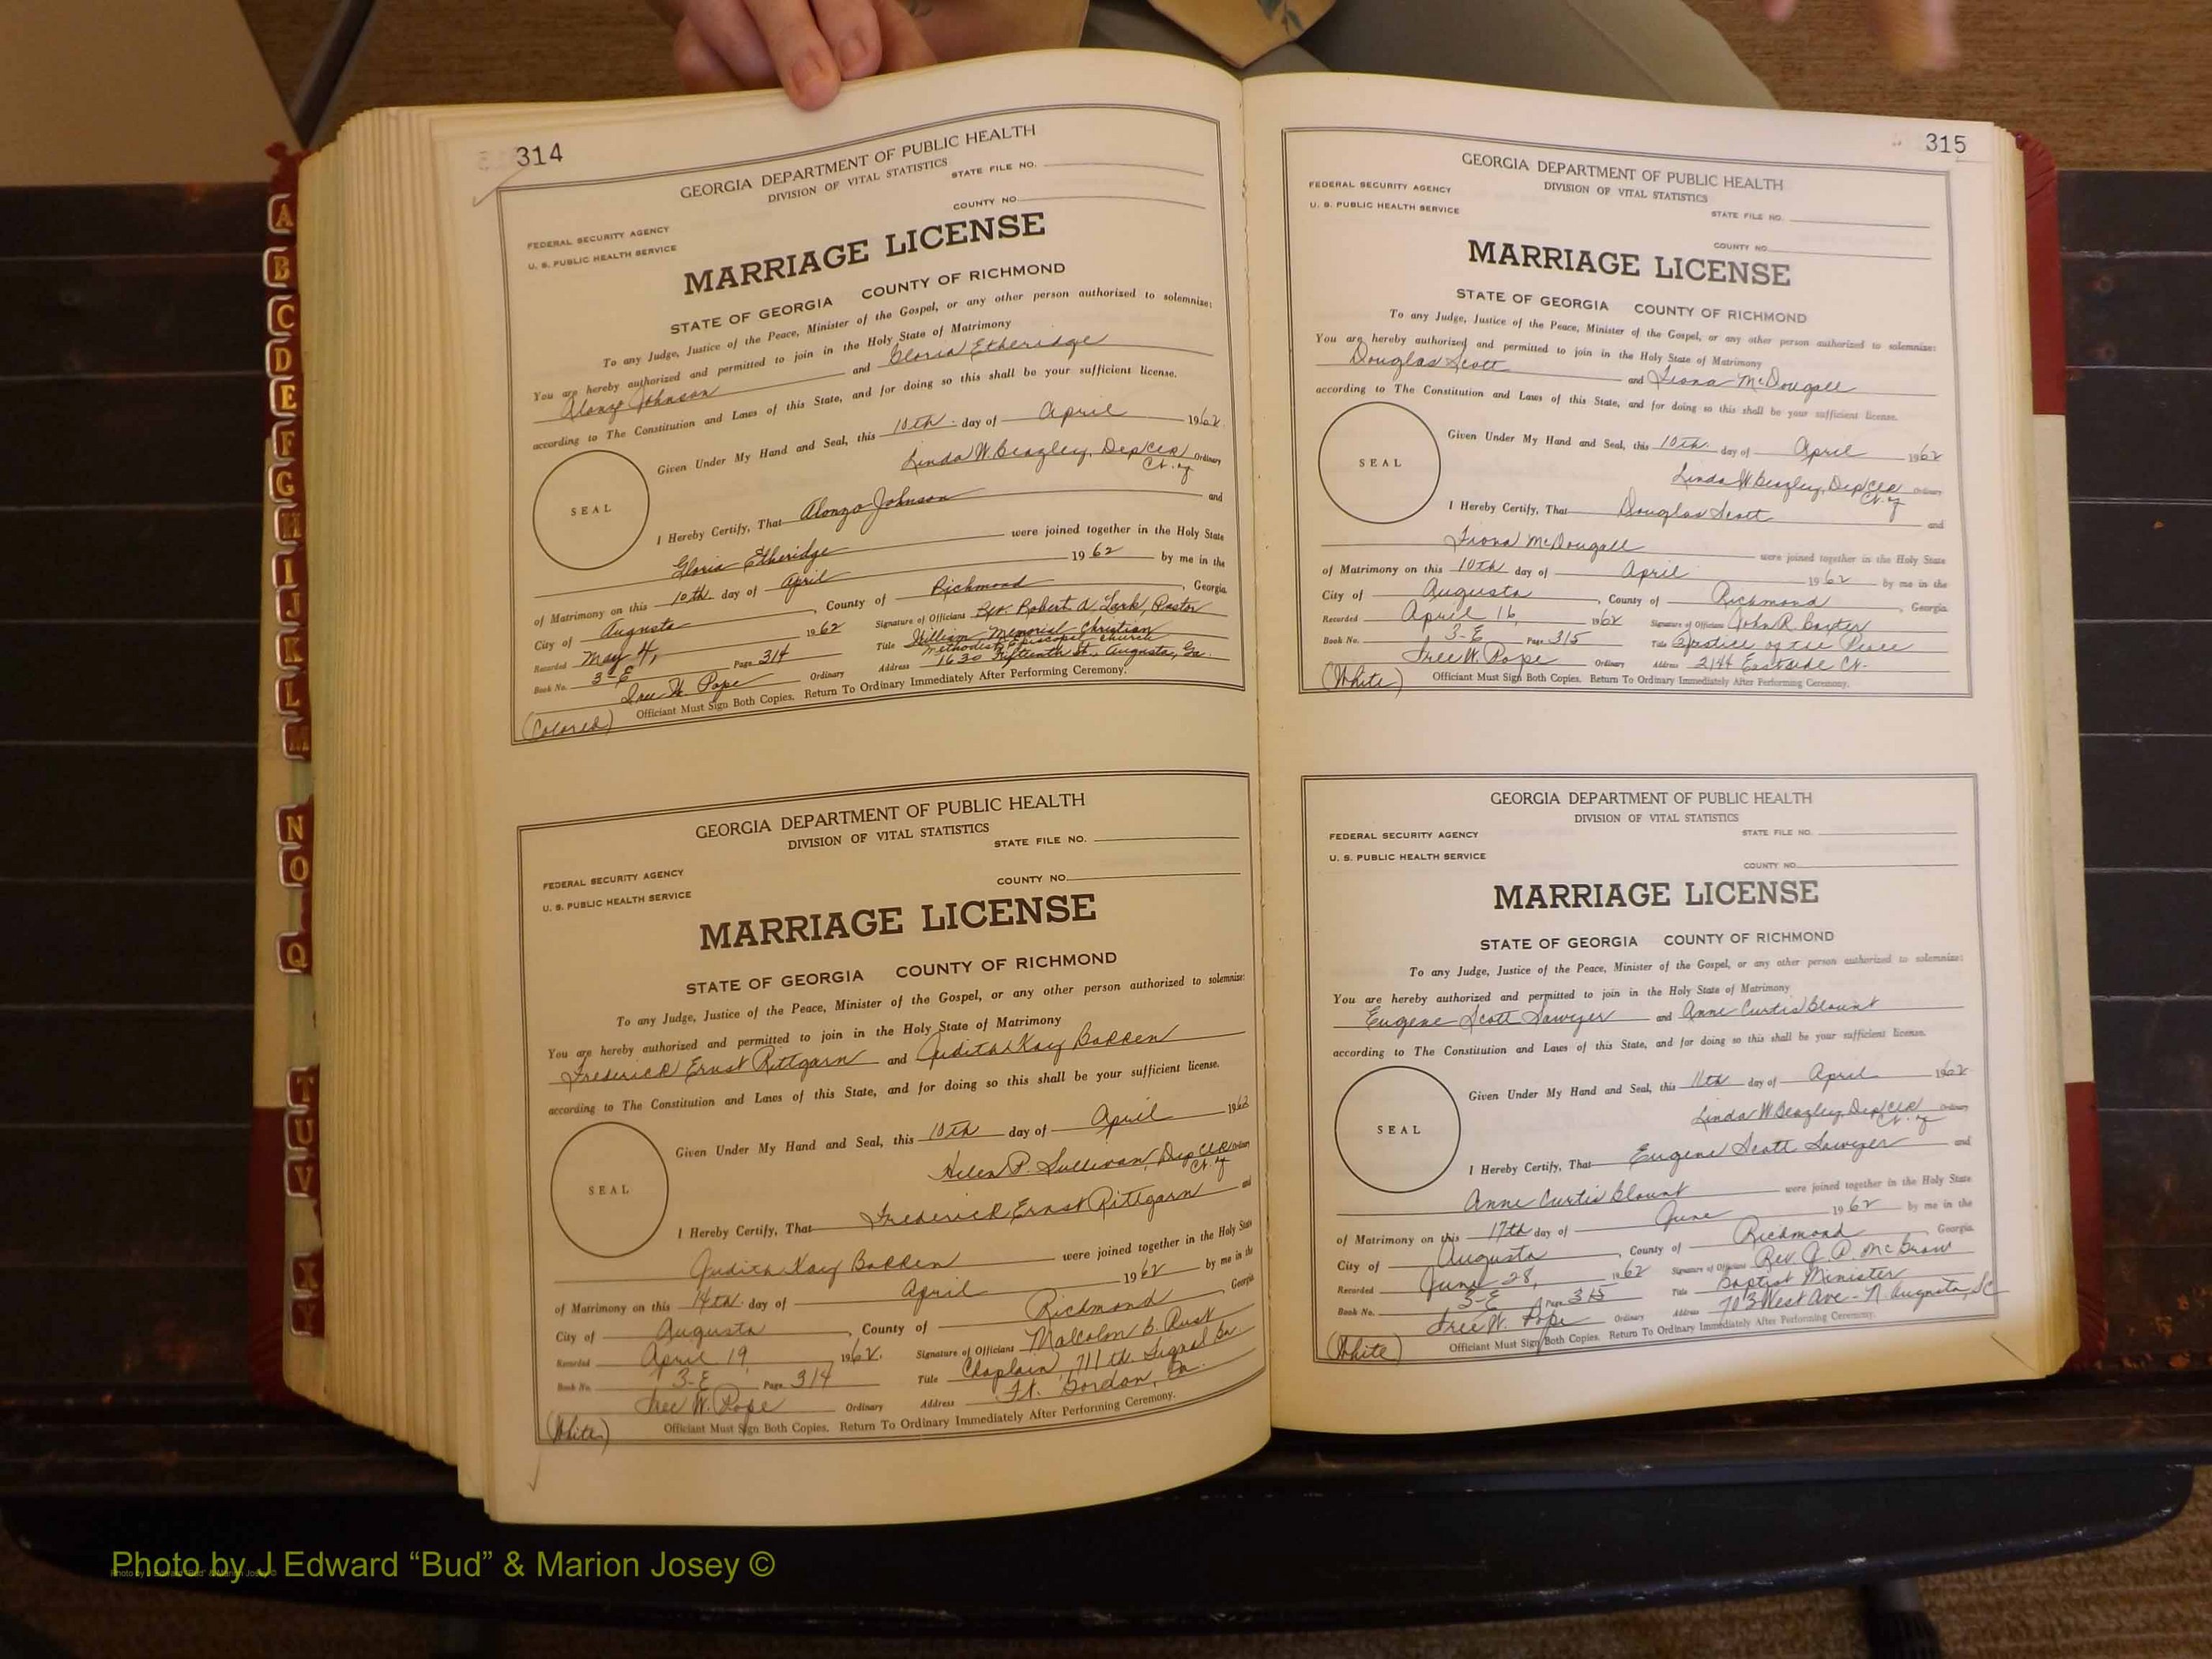 314
GEORGIA DEPARTMENT OF PUBLIC HEALTH
DIVISION OF VITAL STATISTICS
STATE FILE NO.
COUNTY NO.
FEDERAL SECURITY AGENCY
U. S. PUBLIC HEALTH SERVICE
MARRIAGE LICENSE
STATE OF GEORGIA COUNTY OF RICHMOND
To any Judge, Justice of the Peace, Minister of the Gospel, or any other person authorized to solemnize:
You are hereby authorized and permitted to join in the Holy State of Matrimony
Alonzo Johnson and Gloria Etheridge
according to The Constitution and Laws of this State, and for doing so this shall be your sufficient license.
Given Under My Hand and Seal, this 10th day of April 1962
Linda W Beazley, Dep Clk Ordinary
Ct. of
SEAL
I Hereby Certify, That Alonzo Johnson and
Gloria Etheridge were joined together in the Holy State
of Matrimony on this 10th day of April 1962 by me in the
City of Augusta, County of Richmond, Georgia
Recorded May 4, 1962 Signature of Officiant Rev. Robert A. Lark, Pastor
Book No. 3-E Page 314 Title William Memorial Christian
Methodist Episcopal Church
Iree W. Pope Ordinary Address 1630 Fifteenth St., Augusta, Ga.
(Colored) Officiant Must Sign Both Copies. Return To Ordinary Immediately After Performing Ceremony.
GEORGIA DEPARTMENT OF PUBLIC HEALTH
DIVISION OF VITAL STATISTICS
STATE FILE NO.
COUNTY NO.
FEDERAL SECURITY AGENCY
U. S. PUBLIC HEALTH SERVICE
MARRIAGE LICENSE
STATE OF GEORGIA COUNTY OF RICHMOND
To any Judge, Justice of the Peace, Minister of the Gospel, or any other person authorized to solemnize:
You are hereby authorized and permitted to join in the Holy State of Matrimony
Frederick Ernst Rittgarn and Judith Kay Bakken
according to The Constitution and Laws of this State, and for doing so this shall be your sufficient license.
Given Under My Hand and Seal, this 10th day of April 1962
Helen P. Sullivan, Dep Clk Ordinary
Ct. of
SEAL
I Hereby Certify, That Frederick Ernst Rittgarn and
Judith Kay Bakken were joined together in the Holy State
of Matrimony on this 14th day of April 1962 by me in the
City of Augusta, County of Richmond Georgia
Recorded April 19, 1962. Signature of Officiant Malcolm B. Rust
Book No. 3-E Page 314 Title Chaplain, 711th Signal Bn
Iree W. Pope Ordinary Address Ft. Gordon, Ga.
(White) Officiant Must Sign Both Copies. Return To Ordinary Immediately After Performing Ceremony.
315
GEORGIA DEPARTMENT OF PUBLIC HEALTH
DIVISION OF VITAL STATISTICS
FEDERAL SECURITY AGENCY
U. S. PUBLIC HEALTH SERVICE
STATE FILE NO.
COUNTY NO.
MARRIAGE LICENSE
STATE OF GEORGIA COUNTY OF RICHMOND
To any Judge, Justice of the Peace, Minister of the Gospel, or any other person authorized to solemnize:
You are hereby authorized and permitted to join in the Holy State of Matrimony
Douglas Scott and Fiona McDougall
according to The Constitution and Laws of this State, and for doing so this shall be your sufficient license.
Given Under My Hand and Seal, this 10th day of April 1962
Linda W Beazley, Dep Clk Ordinary
Ct. of
SEAL
I Hereby Certify, That Douglas Scott and
Fiona McDougall were joined together in the Holy State
of Matrimony on this 10th day of April 1962 by me in the
City of Augusta, County of Richmond, Georgia
Recorded April 16, 1962 Signature of Officiant John R. Baxter
Book No. 3-E Page 315 Title Justice of the Peace
Iree W. Pope Ordinary Address 2144 Eastside Ct.
(White) Officiant Must Sign Both Copies. Return To Ordinary Immediately After Performing Ceremony.
GEORGIA DEPARTMENT OF PUBLIC HEALTH
DIVISION OF VITAL STATISTICS
FEDERAL SECURITY AGENCY
STATE FILE NO.
U. S. PUBLIC HEALTH SERVICE
COUNTY NO.
MARRIAGE LICENSE
STATE OF GEORGIA COUNTY OF RICHMOND
To any Judge, Justice of the Peace, Minister of the Gospel, or any other person authorized to solemnize:
You are hereby authorized and permitted to join in the Holy State of Matrimony
Eugene Scott Sawyer and Anne Curtis Blount
according to The Constitution and Laws of this State, and for doing so this shall be your sufficient license.
Given Under My Hand and Seal, this 11th day of April 1962
Linda W Beazley, Dep Clk Ordinary
Ct. of
SEAL
I Hereby Certify, That Eugene Scott Sawyer and
Anne Curtis Blount were joined together in the Holy State
of Matrimony on this 17th day of June 1962 by me in the
City of Augusta, County of Richmond Georgia
Recorded June 28, 1962 Signature of Officiant Rev. J. P. McGraw
Book No. 3-E Page 315 Title Baptist Minister
Iree W. Pope Ordinary Address 703 West Ave - N Augusta, SC
(White) Officiant Must Sign Both Copies. Return To Ordinary Immediately After Performing Ceremony.
A
B
C
D
E
F
G
H
I
J
K
L
M
N
O
Q
T
U
V
X
Y
Photo by J Edward “Bud” & Marion Josey ©
Photo by J Edward "Bud" & Marion Josey ©